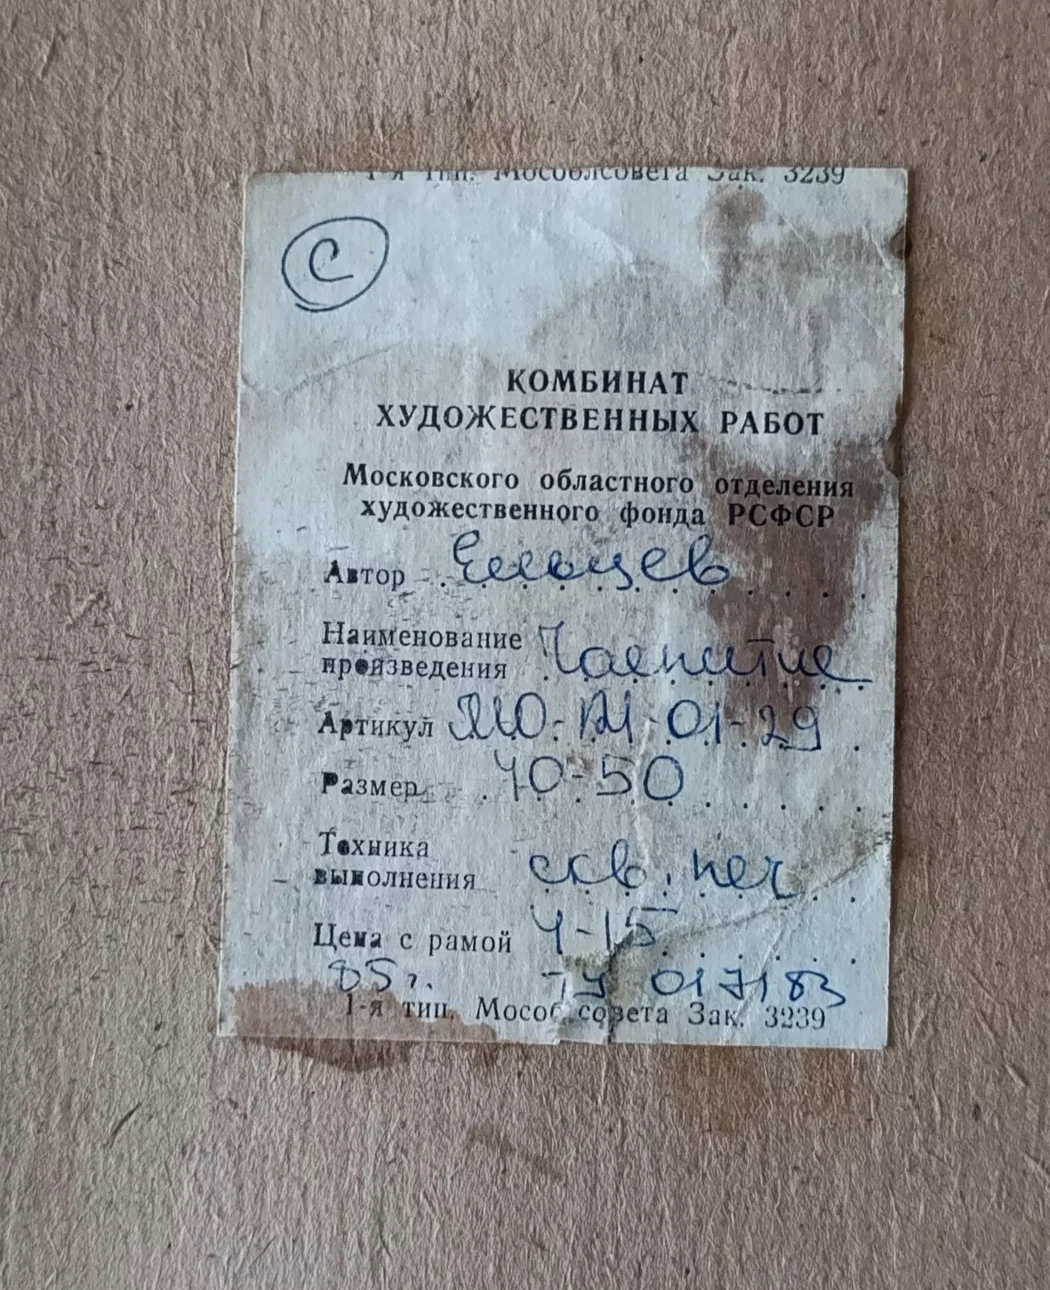 1-я тип. Мособлсовета Зак. 3239
С
КОМБИНАТ
ХУДОЖЕСТВЕННЫХ РАБОТ
Московского областного отделения
художественного фонда РСФСР
Автор
Наименование
произведения Чаепитие
Артикул 01-29
Размер 40-50
Техника
выполнения скв. печ
Цена с рамой 4-15
85 г. ТУ 017183
1-я тип. Мособлсовета Зак. 3239